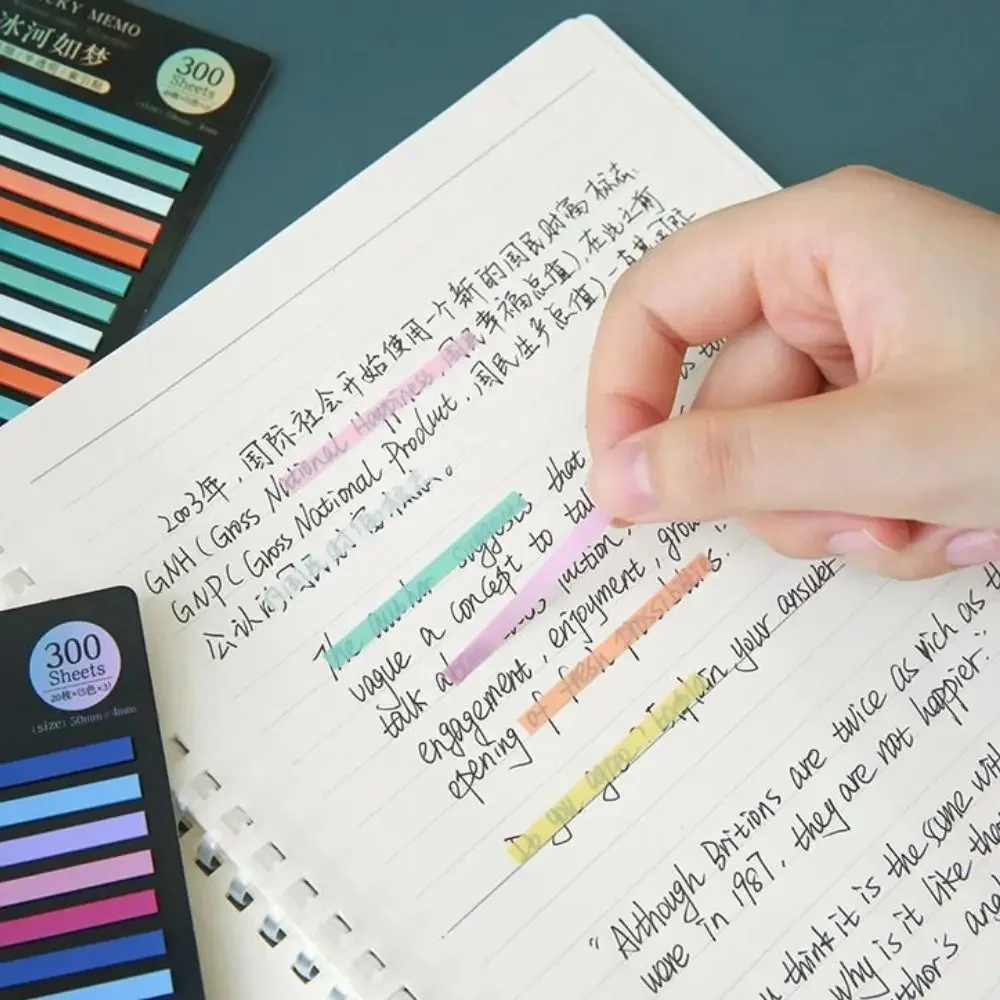 KY MEMO
冰河如梦
300
Sheets
2003年,国际社会开始使用一个新的国民财富标志,
GNH(Gross National Happiness,国民幸福总值),在此之前
GNP(Gross National Product,国民生产总值)一直是国际
公认的国民财富标准。
The author suggests that
vague a concept to
talk
engagement, enjoyment,
opening of fresh possibilities.
Do you agree? Explain your answer
300
Sheets
20枚×(5色×3)
(size) 50mm×4mm
"Although Britions are twice as rich as
were in 1987, they are not happier.
think it is the same with
Why is it like
thor's